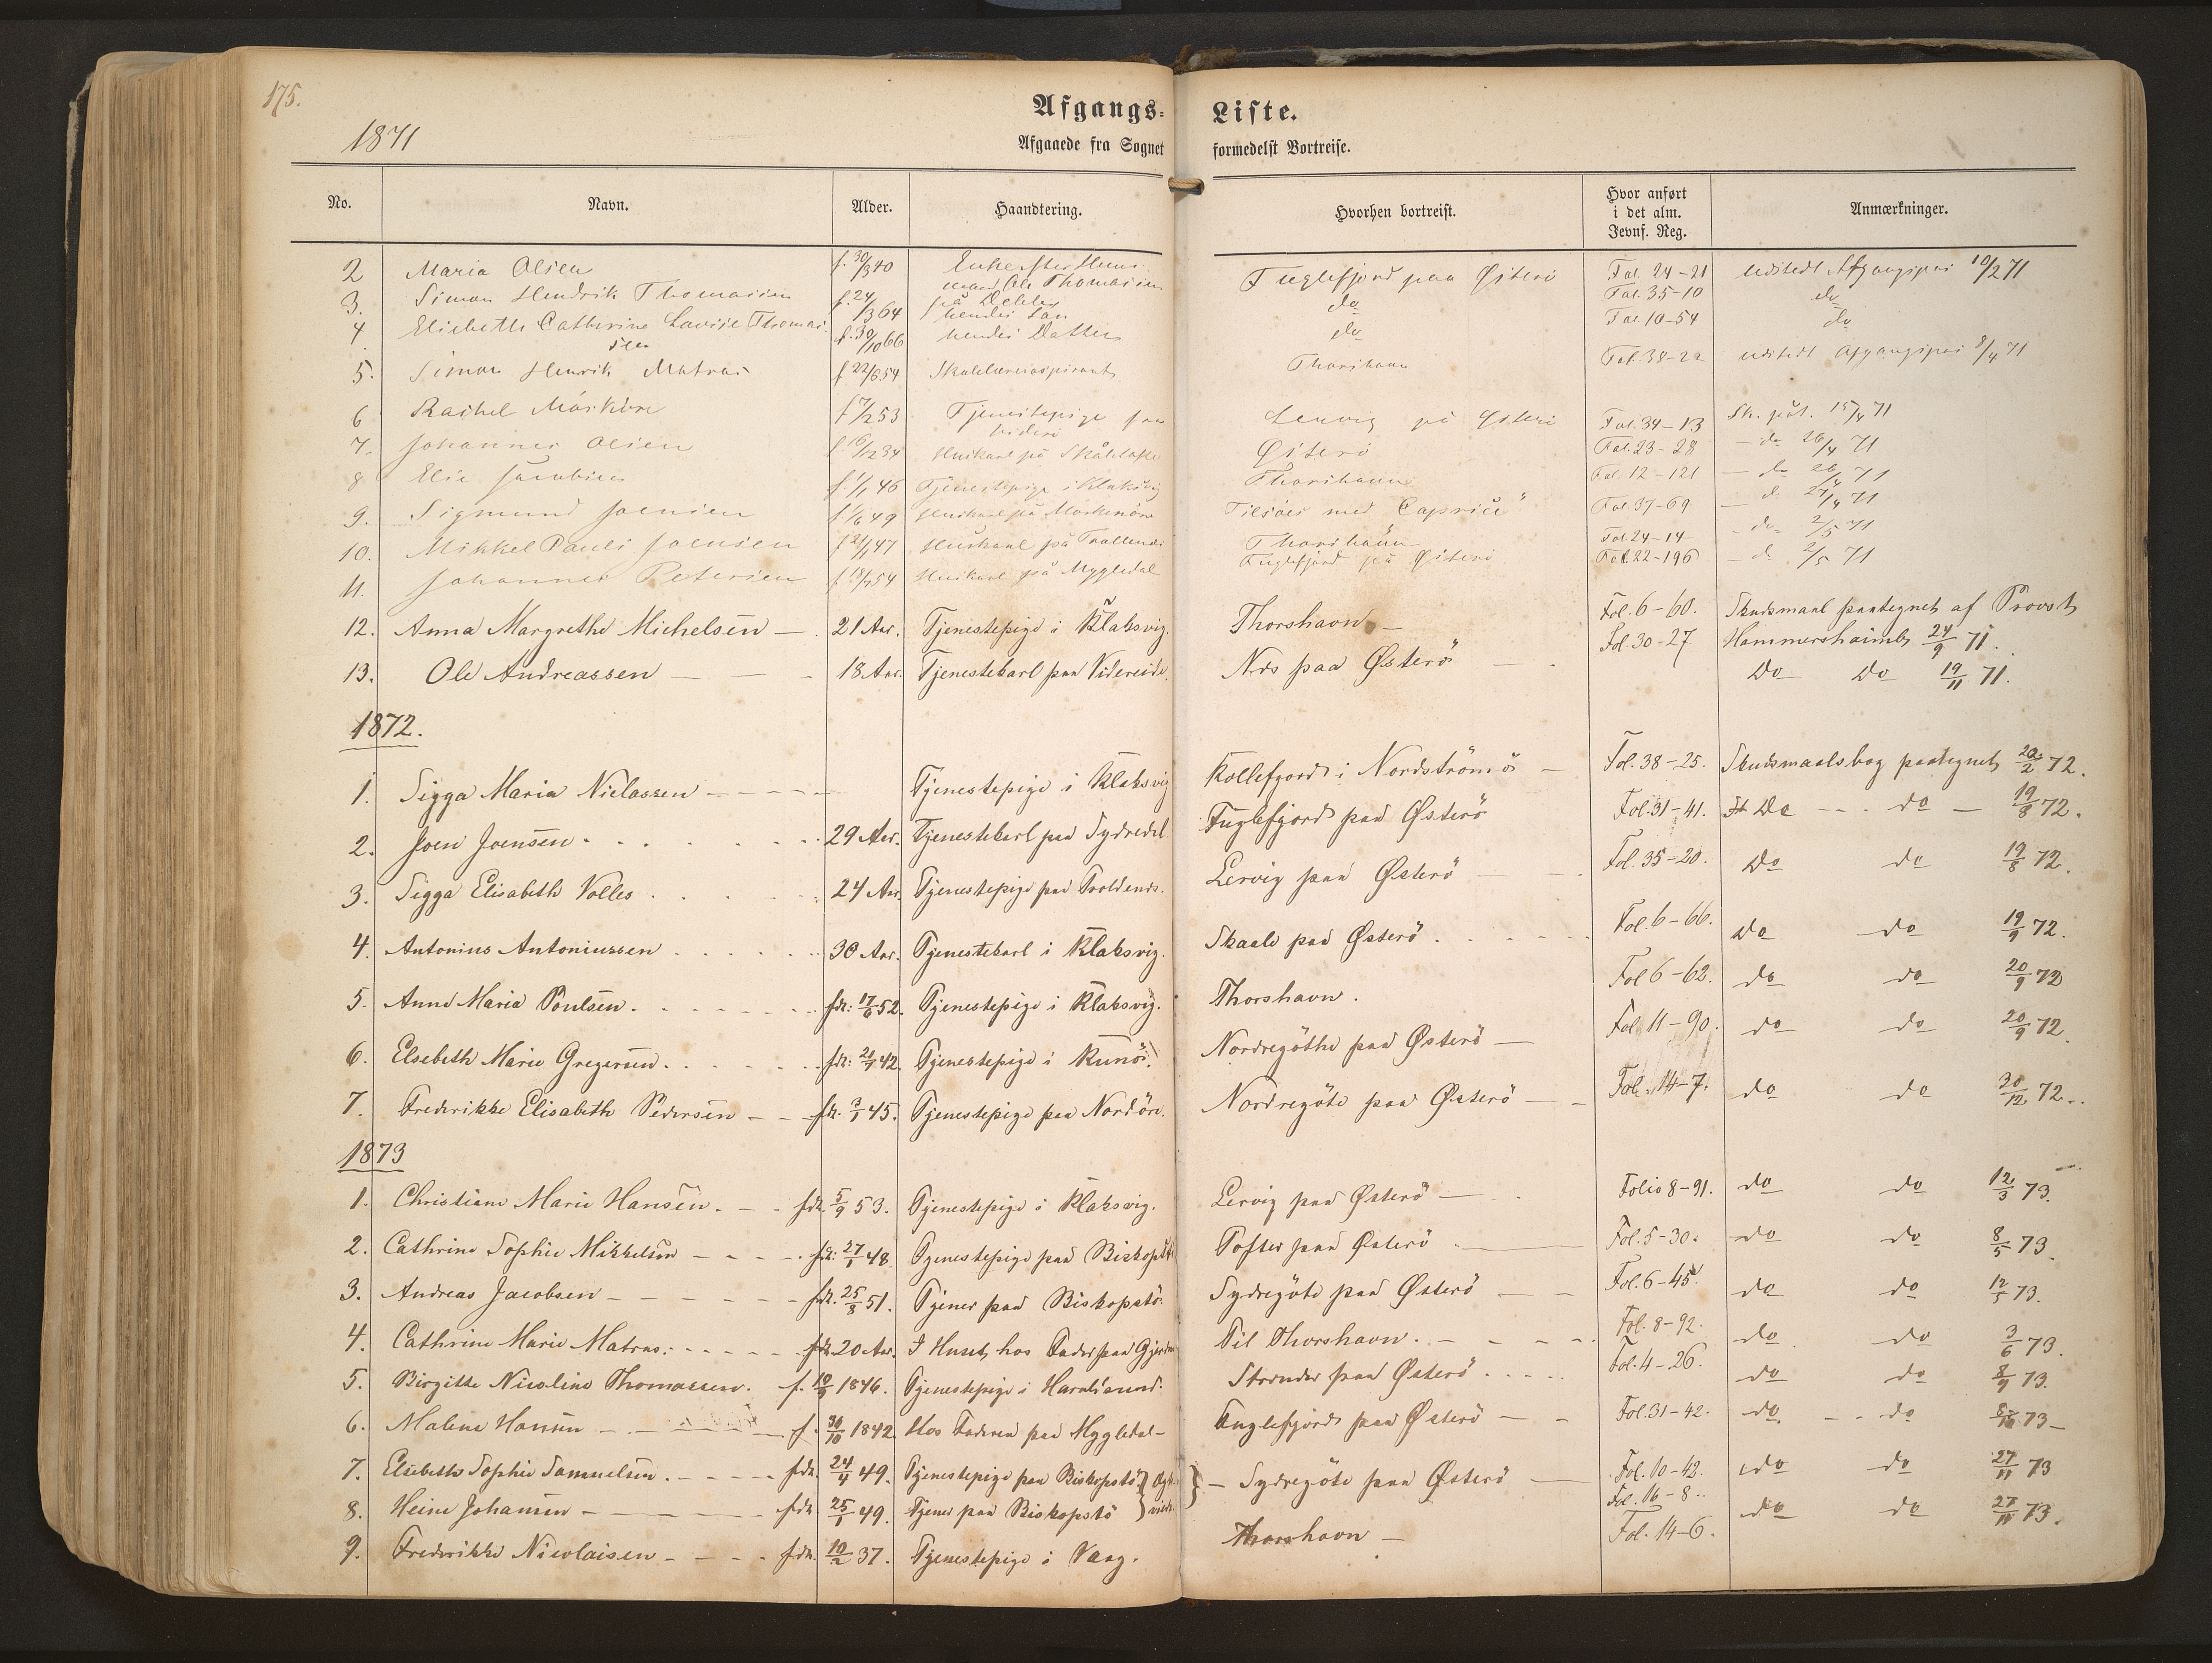 175.
1871
Afgangs-Liste.
Afgaaede fra Sognet formedelst Bortreise.
No. Navn. Alder. Haandtering. Hvorhen bortreist. Hvor anført i det alm. Jevnf. Reg. Anmærkninger.
2 Maria Olsen f. 30/3 40 Fuglefjord paa Østerö Fol. 24-21 udstedt Afgangspas 10/2 71
3. Simon Hendrik Thomassen f. 24/3 64 hendes Søn do Fol. 35-10 do
4 Elsebeth Cathrine Lovise Thomassen f. 30/10 66 hendes Datter do Fol. 10-54 do
5. Simon Henrik Matras f 22/6 54 Skolelæreraspirant Thorshavn Fol. 38-22 udstedt Afgangspas 8/4 71
6 Rachel Mörköre f 7/2 53 Tjenestepige paa Viderö Lervig på Østerö Fol. 34-13 Sk. påt. 15/4 71
7. Johannes Olsen f 16/12 34 Huskarl på Skålatofte Østerö Fol. 23-28 - do 26/4 71
8 Elie Jacobsen f. 1/1 46 Tjenestepige i Klaksvig Thorshavn Fol. 12-121 - do 26/4 71
9. Sigmund Joensen f 1/6 49 Huskarl på Morkenöre Tilsöes med "Caprice" Fol. 37-69 - do 27/4 71
10. Mikkel Pauli Joensen f 21/1 47 Huskarl på Trollenæs Thorshavn Fol. 24-14 - do 2/5 71
11. Johannes Petersen f. 18/7 54 Huskarl på Mygledal Fuglefjord på Østerö Fol. 22-196 - do 2/5 71
12. Anna Margrethe Michelsen - 21 Aar. Tjenestepige i Klaksvig. Thorshavn - Fol. 6-60. Skudsmaal paategnet af Provst Hammershaimb 24/9 71.
13. Ole Andreassen - - - 18 Aar. Tjenestekarl paa Videreide. Næs paa Østerö - Fol. 30-27 Do Do 19/11 71.
1872.
1. Sigga Maria Nielassen - - - - Tjenestepige i Klaksvig Kollefjord i Nordströmö - Fol. 38-25. Skudsmaalsbog paategnet 20/2 72.
2. Joen Joensen - 29 Aar. Tjenestekarl paa Sydredal. Fuglefjord paa Østerö Fol. 31-41. Do - do - 19/8 72.
3. Sigga Elisabeth Volles 24 Aar. Tjenestepige paa Troldenæs. Lervig paa Østerö Fol. 35-20. Do do 19/8 72.
4. Antonius Antoniussen 30 Aar. Tjenestekarl i Klaksvig. Skaale paa Østerö Fol. 6-66. do do 19/9 72.
5. Anna Maria Poulsen. fdt: 17/6 52. Tjenestepige i Klaksvig. Thorshavn. Fol 6-62. do do 20/9 72
6. Elsebeth Marie Gregersen. fdt: 21/7 42. Tjenestepige i Kunö. Nordregöthe paa Østerö - Fol. 11-90. do do 20/9 72.
7. Frederikke Elisabeth Pedersen - - fdt. 3/1 45. Tjenestepige paa Nordöre. Nordregöte paa Østerö - - Fol. 14-7. do do 30/12 72.
1873
1. Christiane Marie Hansen. - - fdt. 5/9 53. Tjenestepige i Klaksvig. Lervig paa Østerö - Folio 8-91. do do 12/3 73.
2. Cathrine Sophie Mikkelsen - - - fdt: 27/1 48. Tjenestepige paa Biskopstö Tofter paa Østerö - Fol. 5-30. do do 8/5 73.
3. Andreas Jacobsen - - - - - fdt. 25/8 51. Tjener paa Biskopstö. Sydregöte paa Østerö - - Fol. 6-45. do do 12/5 73.
4. Cathrine Marie Matras. - - - - fdt. 20 Aar. I Huset hos Fader paa Gjerdum Til Thorshavn. - - - Fol. 8-92. do do 3/6 73.
5. Birgitte Nicoline Thomassen. f. 10/9 1846. Tjenestepige i Haraldsund. Strænder paa Østerö Fol. 4-26. do do 8/9 73.
6. Malena Hansen - - - f. 30/10 1842. Hos Faderen paa Mygledal - Fuglefjord paa Østerö - - Fol. 31-42. do - - do 8/10 73-
7. Elsebeth Sophie Samuelsen. - - - - fdt. 24/4 49. Tjenestepige paa Biskopstö } - Sydregöte paa Østerö - Fol. 10-42. do do 27/11 73
8. Heine Johansen - - - - fdt. 25/1 49. Tjener paa Biskopstö } Fol. 16-8. do do 27/11 73.
9. Frederikke Nicolaisen - - - - fdt. 10/2 37. Tjenestepige i Vaag. Thorshavn - Fol. 14-6.